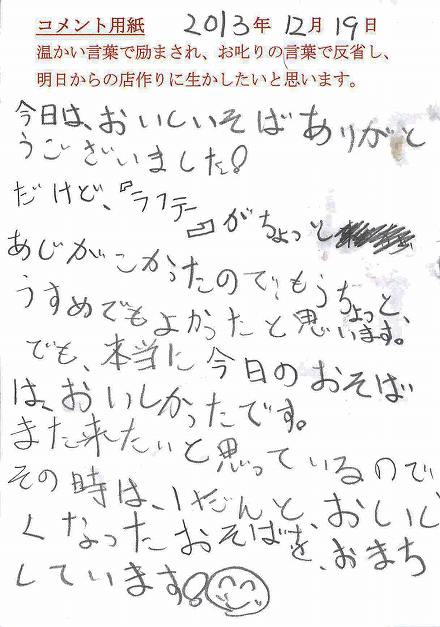 コメント用紙 2013年 12月 19日
温かい言葉で励まされ、お叱りの言葉で反省し、
明日からの店作りに生かしたいと思います。
今日は、おいしいそばありがと
うございました!
だけど、『ラフテー』がちょっと
あじがこかったので、もうちょっと、
うすめでもよかったと思います。
でも、本当に今日のおそば
は、おいしかったです。
また来たいと思っているので
その時は、いだんと、おいし
くなったおそばを、おまち
しています!